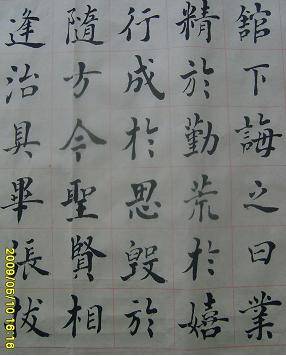 舘下誨之曰業
精於勤荒於嬉
行成於思毀於
隨方今聖賢相
逢治具畢張拔
2009/06/10 16:16